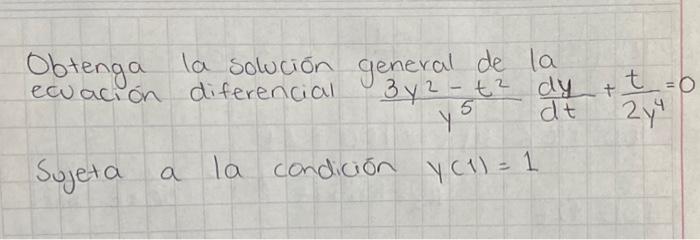 Obtenga la solución general de la
ecuación diferencial \frac{3y^2 - t^2}{y^5} \frac{dy}{dt} + \frac{t}{2y^4} = 0
Sujeta a la condición y(1) = 1